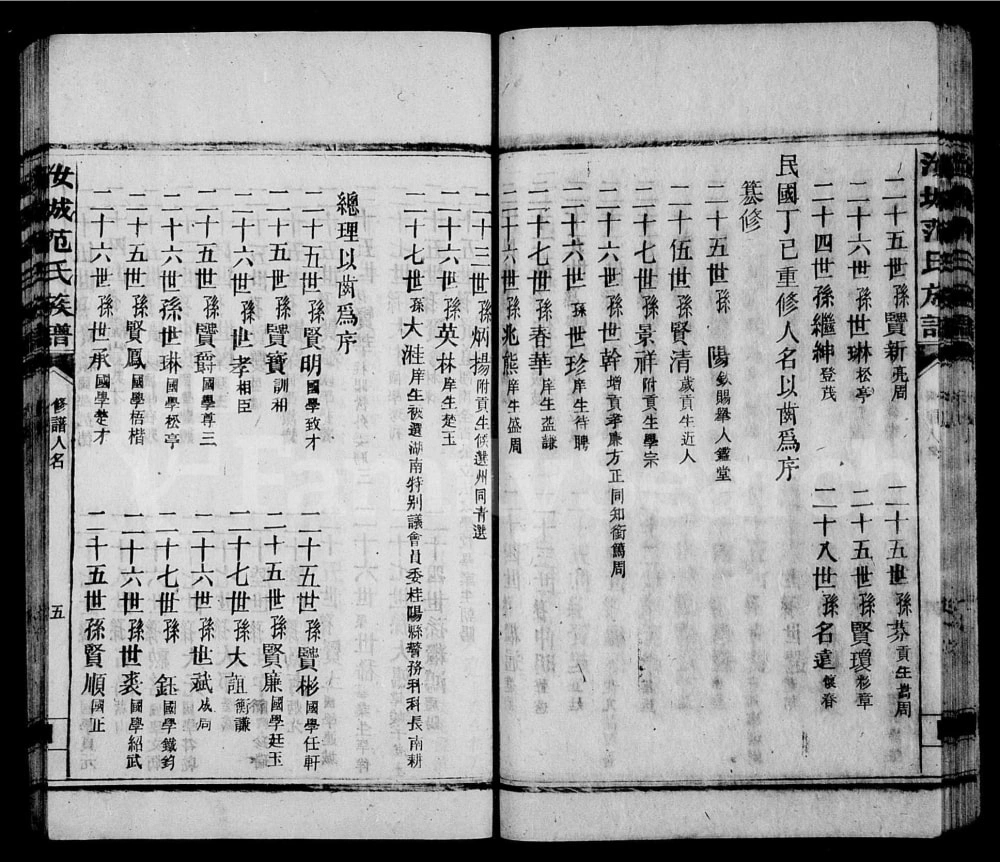 汝城范氏族譜
二十五世孫賢新亮周　二十五世孫芬貢生嵩周
二十六世孫世琳松亭　二十五世孫賢瓊彩章
二十四世孫繼紳登茂　二十八世孫名遠
民國丁巳重修人名以齒爲序
篡修
二十五世孫　陽欽賜舉人鑑堂
二十伍世孫賢清歲貢生近人
二十七世孫景祥附貢生學宗
二十六世孫世幹增貢孝廉方正同知銜篤周
二十六世孫世珍庠生待聘
二十七世孫春華庠生益謙
二十六世孫兆熊庠生盛周
二十三世孫炳揚附貢生候選州同青選
二十六世孫英林庠生楚玉
二十七世孫大漄庠生被選湖南特別議會員委桂陽縣警務科科長南耕
總理以齒爲序
二十五世孫賢明國學致才　二十五世孫賢彬國學任軒
二十五世孫賢寶訓相　二十五世孫賢廉國學廷玉
二十六世孫世孝相臣　二十七世孫大詛衡謙
二十五世孫賢爵國學尊三　二十六世孫世斌成周
二十六世孫世琳國學松亭　二十七世孫　鈺國學鐵鈞
二十五世孫賢鳳國學梧楷　二十六世孫世裘國學紹武
二十六世孫世承國學楚才　二十五世孫賢順國正
汝城范氏族譜　修譜人名　五